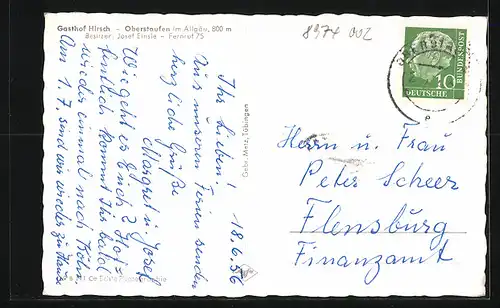 Gasthof Hirsch - Oberstaufen im Allgäu, 800 m
Besitzer: Josef Einsle - Fernruf 75
8974 002
DEUTSCHE
BUNDESPOST
10
Gebr. Metz, Tübingen
18.6.56
Ihr Lieben!
Aus unseren Ferien senden
herzliche Grüße
Margret u. Josef
Wie geht es Euch? Hof=
fentlich kommt Ihr bald
wieder einmal nach Köln
Am 1.7. sind wir wieder zu Haus
Herrn u. Frau
Peter Scheer
Flensburg
Finanzamt